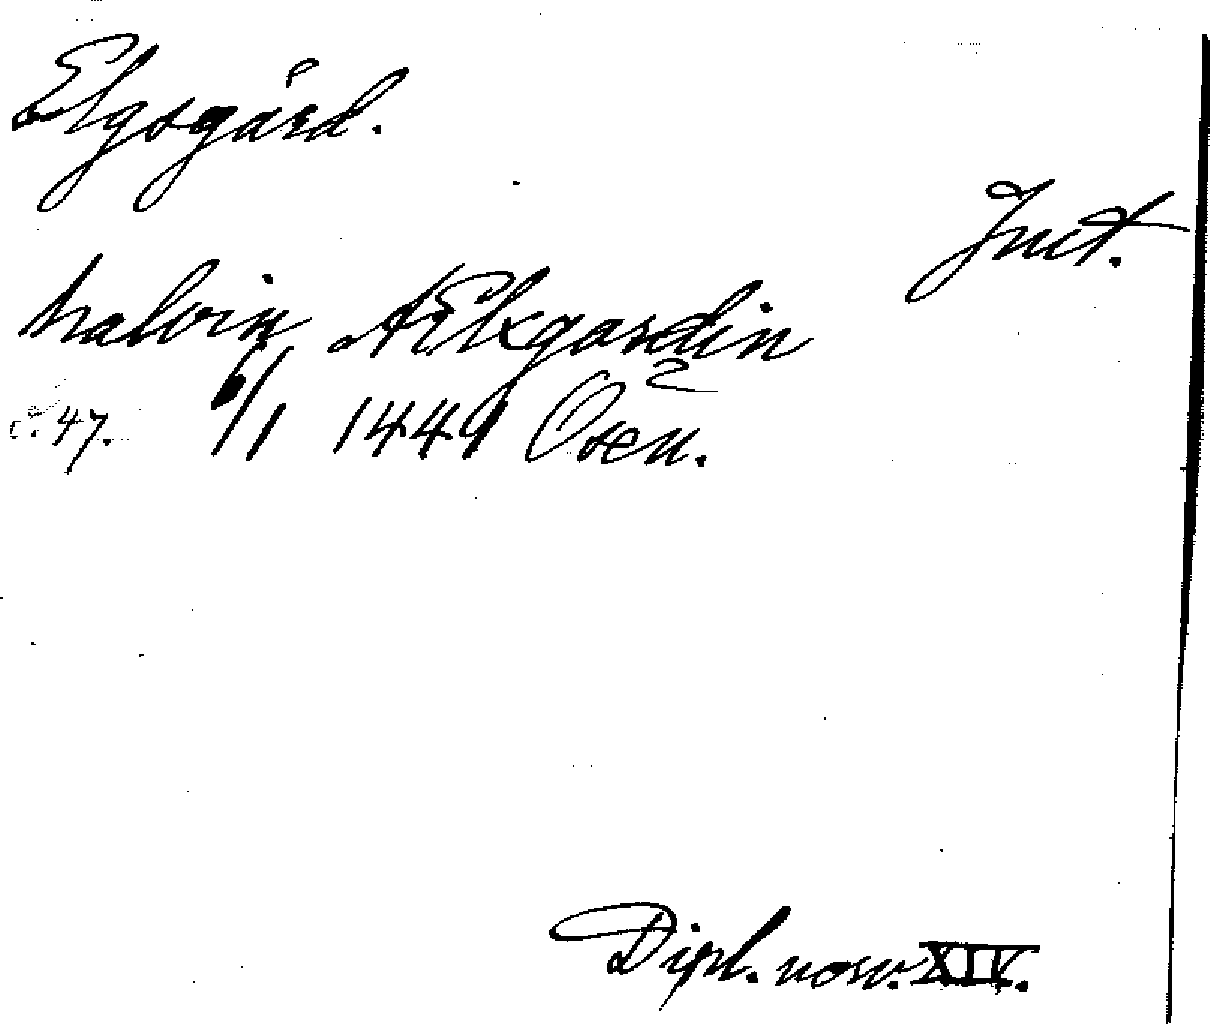 Elgsgård.
Inct.
halvin Ælxgardin
s. 47. 6/1 1449 Osen.
Dipl. norv. XIV.